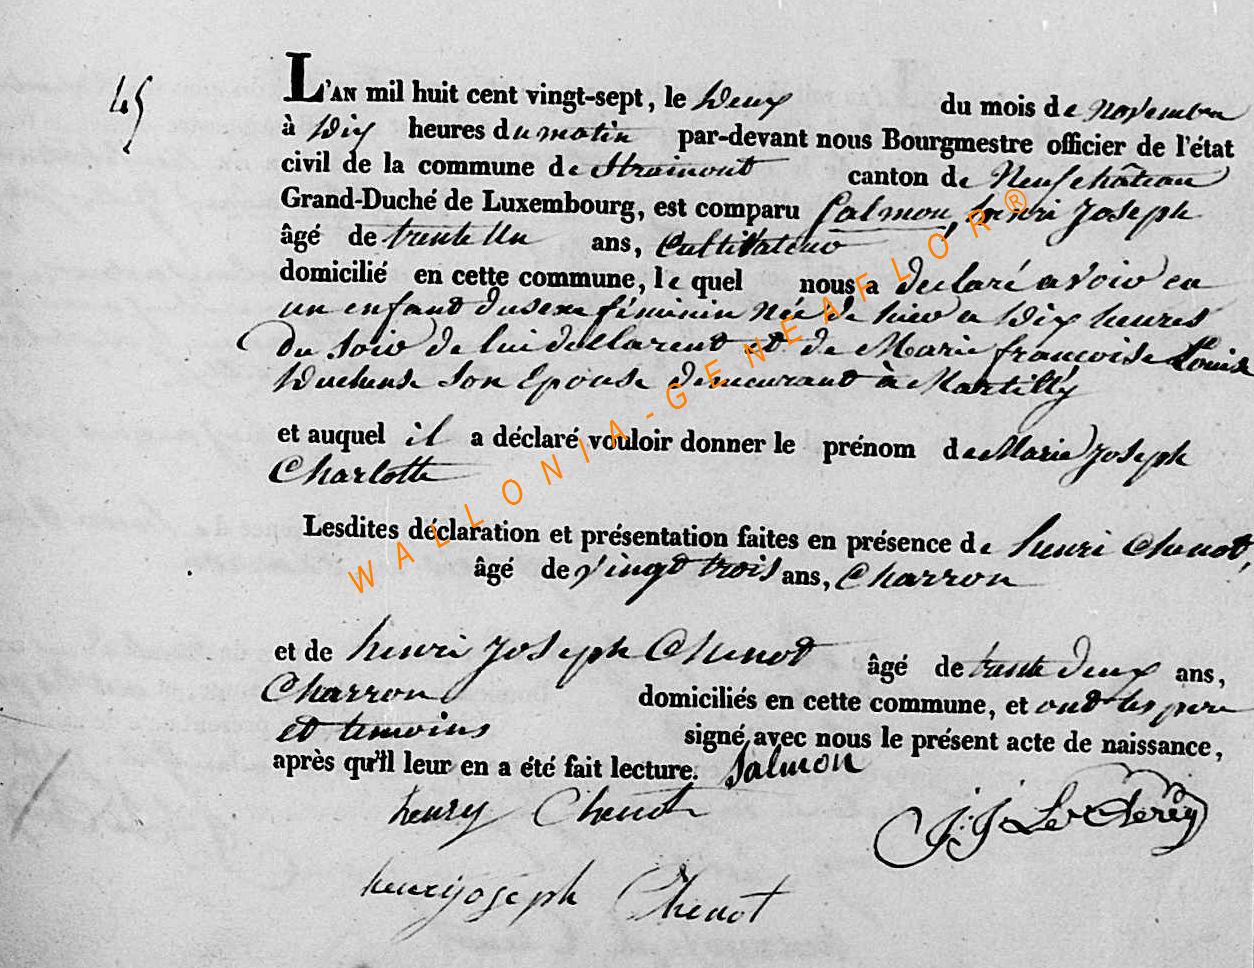 45
L'AN mil huit cent vingt-sept, le Deux du mois de novembre
à Dix heures du matin par-devant nous Bourgmestre officier de l'état
civil de la commune de Straimont canton de Neufchâteau
Grand-Duché de Luxembourg, est comparu Salmon, henri Joseph
âgé de trente Un ans, Cultivateur
domicilié en cette commune, le quel nous a declaré avoir eu
un enfant du sexe féminin Née de hier a Dix heures
Du soir de lui declarent et de Marie françoise Louise
son Epouse demeurant à Martilly
et auquel il a déclaré vouloir donner le prénom de Marie Joseph
Charlotte
Lesdites déclaration et présentation faites en présence de henri Chenot,
âgé de Vingt trois ans, Charron
et de henri Joseph Chenot âgé de trente deux ans,
Charron domiciliés en cette commune, et ont les pere
et temoins signé avec nous le présent acte de naissance,
après qu'il leur en a été fait lecture. Salmon
henry Chenot
J. J. Le Clerey
henry joseph Chenot
WALLONIA-GENEAFLOR®